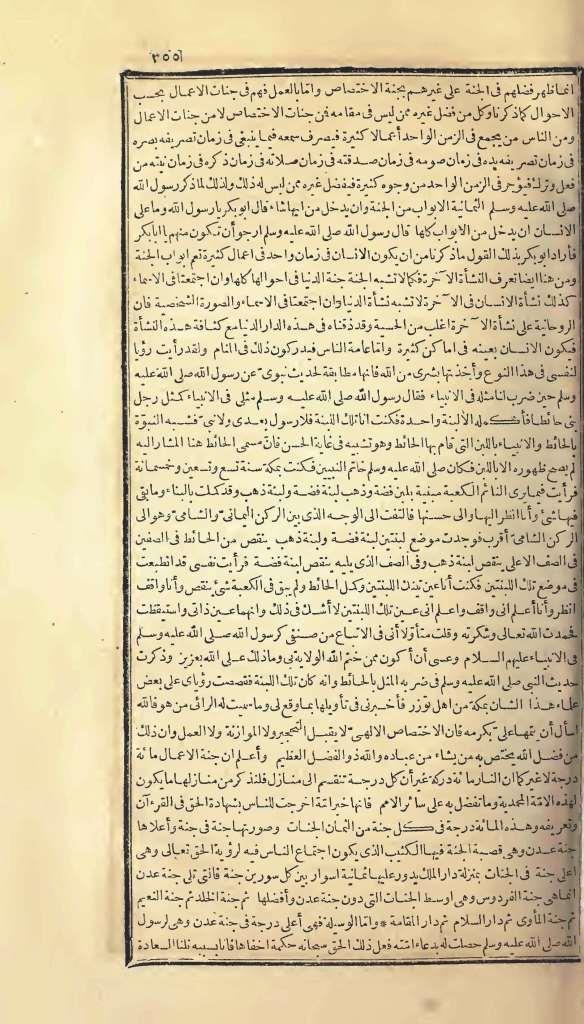 ٣٥٥
انماظهر فضلهم فى الجنة على غيرهم بجنة الاختصاص وامّا بالعمل فهم فى جنات الاعمال بحسب
الاحوال كماذكرنا وكل من فضل غيره ممن ليس فى مقامه فمن جنات الاختصاص لامن جنات الاعمال
ومن الناس من يجمع فى الزمن الواحد أعمالا كثيرة فيصرف سمعه فيما ينبغى فى زمان تصريفه بصره
فى زمان تصريفه يده فى زمان صومه فى زمان صدقته فى زمان صلاته فى زمان ذكره فى زمان نيته من
فعل وترك فيؤجر فى الزمن الواحد من وجوه كثيرة فيفضل غيره ممن ليس له ذلك ولذلك لماذكر رسول الله
صلى الله عليه وسلم الثمانية الابواب من الجنة وان يدخل من ايها شاء قال ابوبكر يارسول الله وماعلى
الانسان ان يدخل من الابواب كلها قال رسول الله صلى الله عليه وسلم ارجو أن تكون منهم يا ابابكر
فأراد ابوبكر بذلك القول ماذكرنا من ان يكون الانسان فى زمان واحد فى اعمال كثيرة تعم ابواب الجنة
ومن هنا ايضا تعرف النشأة الآخرة فكما لا تشبه الجنة جنة الدنيا فى احوالها كلها وان اجتمعتا فى الاسماء
كذلك نشأة الانسان فى الآخرة لا تشبه نشأة الدنيا وان اجتمعتا فى الاسماء والصورة الشخصية فان
الروحانية على نشأة الآخرة اغلب من الحسية وقد ذقناه فى هذه الدار الدنيا مع كثافة هذه النشأة
فيكون الانسان بعينه فى اماكن كثيرة وامّا عامة الناس فيدركون ذلك فى المنام ولقد رأيت رؤيا
لنفسى فى هذا النوع وأخذتها بشرى من الله فانها مطابقة لحديث نبوىّ عن رسول الله صلى الله عليه
وسلم حين ضرب لنا مثله فى الانبياء فقال رسول الله صلى الله عليه وسلم مثلى فى الانبياء كمثل رجل
بنى حائطا فأكمله الا لبنة واحدة فكنت انا تلك اللبنة فلا رسول بعدى ولا نبىّ فشبه النبوّة
بالحائط والانبياء باللبن التى قام بها الحائط وهو تشبيه فى غاية الحسن فانّ مسمى الحائط هنا المشار اليه
لم يصح ظهوره الا باللبن فكان صلى الله عليه وسلم خاتم النبيين فكنت بمكة سنة تسع وتسعين وخمسمائة
فرأيت فيما يرى النائم الكعبة مبنية بلبن فضة وذهب لبنة فضة ولبنة ذهب وقد كملت بالبناء وما بقى
فيها شئ وأنا انظر اليها والى حسنها فالتفت الى الوجه الذى بين الركن اليمانىّ والشامىّ وهو الى
الركن الشامىّ أقرب فوجدت موضع لبنتين لبنة فضة ولبنة ذهب ينقص من الحائط فى الصفين
فى الصف الاعلى ينقص لبنة ذهب وفى الصف الذى يليه ينقص لبنة فضة فرأيت نفسى قد انطبعت
فى موضع تلك اللبنتين فكنت أنا عين تينك اللبنتين وكمل الحائط ولم يبق فى الكعبة شئ ينقص وأنا واقف
انظر وأنا أعلم انى واقف واعلم انى عين تلك اللبنتين لا أشك فى ذلك وانهما عين ذاتى واستيقظت
فحمدت الله تعالى وشكرته وقلت متأوّلا أنى فى الاتباع من صنفى كرسول الله صلى الله عليه وسلم
فى الانبياء عليهم السلام وعسى أن أكون ممن ختم الله الولاية بى وما ذلك على الله بعزيز وذكرت
حديث النبى صلى الله عليه وسلم فى ضربه المثل بالحائط وانه كان تلك اللبنة فقصصت رؤياى على بعض
علماء هذا الشان بمكة من اهل توزر فأخبرنى فى تأويلها بما وقع لى وماسميت له الرائى من هو فالله
اسأل أن يتمها علىّ بكرمه فان الاختصاص الالهى لا يقبل التحجير ولا الموازنة ولا العمل وان ذلك
من فضل الله يختص به من يشاء من عباده والله ذو الفضل العظيم وأعلم ان جنة الاعمال مائة
درجة لاغير كما ان النار مائة درك غير أن كل درجة تنقسم الى منازل فلنذكر من منازلها ما يكون
لهذه الامّة المحمدية وما تفضل به على سائر الامم فانها خير امّة اخرجت للناس بشهادة الحق فى القرءآن
وتعريفه وهذه المائة درجة فى كل جنة من الثمان الجنات وصورتها جنة فى جنة وأعلاها
جنة عدن وهى قصبة الجنة فيها الكثيب الذى يكون اجتماع الناس فيه لرؤية الحق تعالى وهى
اعلى جنة فى الجنات بمنزلة دار الملك يدور عليها ثمانية اسوار بين كل سورين جنة فالتى تلى جنة عدن
انماهى جنة الفردوس وهى اوسط الجنات التى دون جنة عدن وأفضلها ثم جنة الخلد ثم جنة النعيم
ثم جنة المأوى ثم دار السلام ثم دار المقامة * وامّا الوسيلة فهى أعلى درجة فى جنة عدن وهى لرسول
الله صلى الله عليه وسلم حصلت له بدعاء امّته فعل ذلك الحق سبحانه حكمة اخفاها فانا بسببه نلنا السعادة